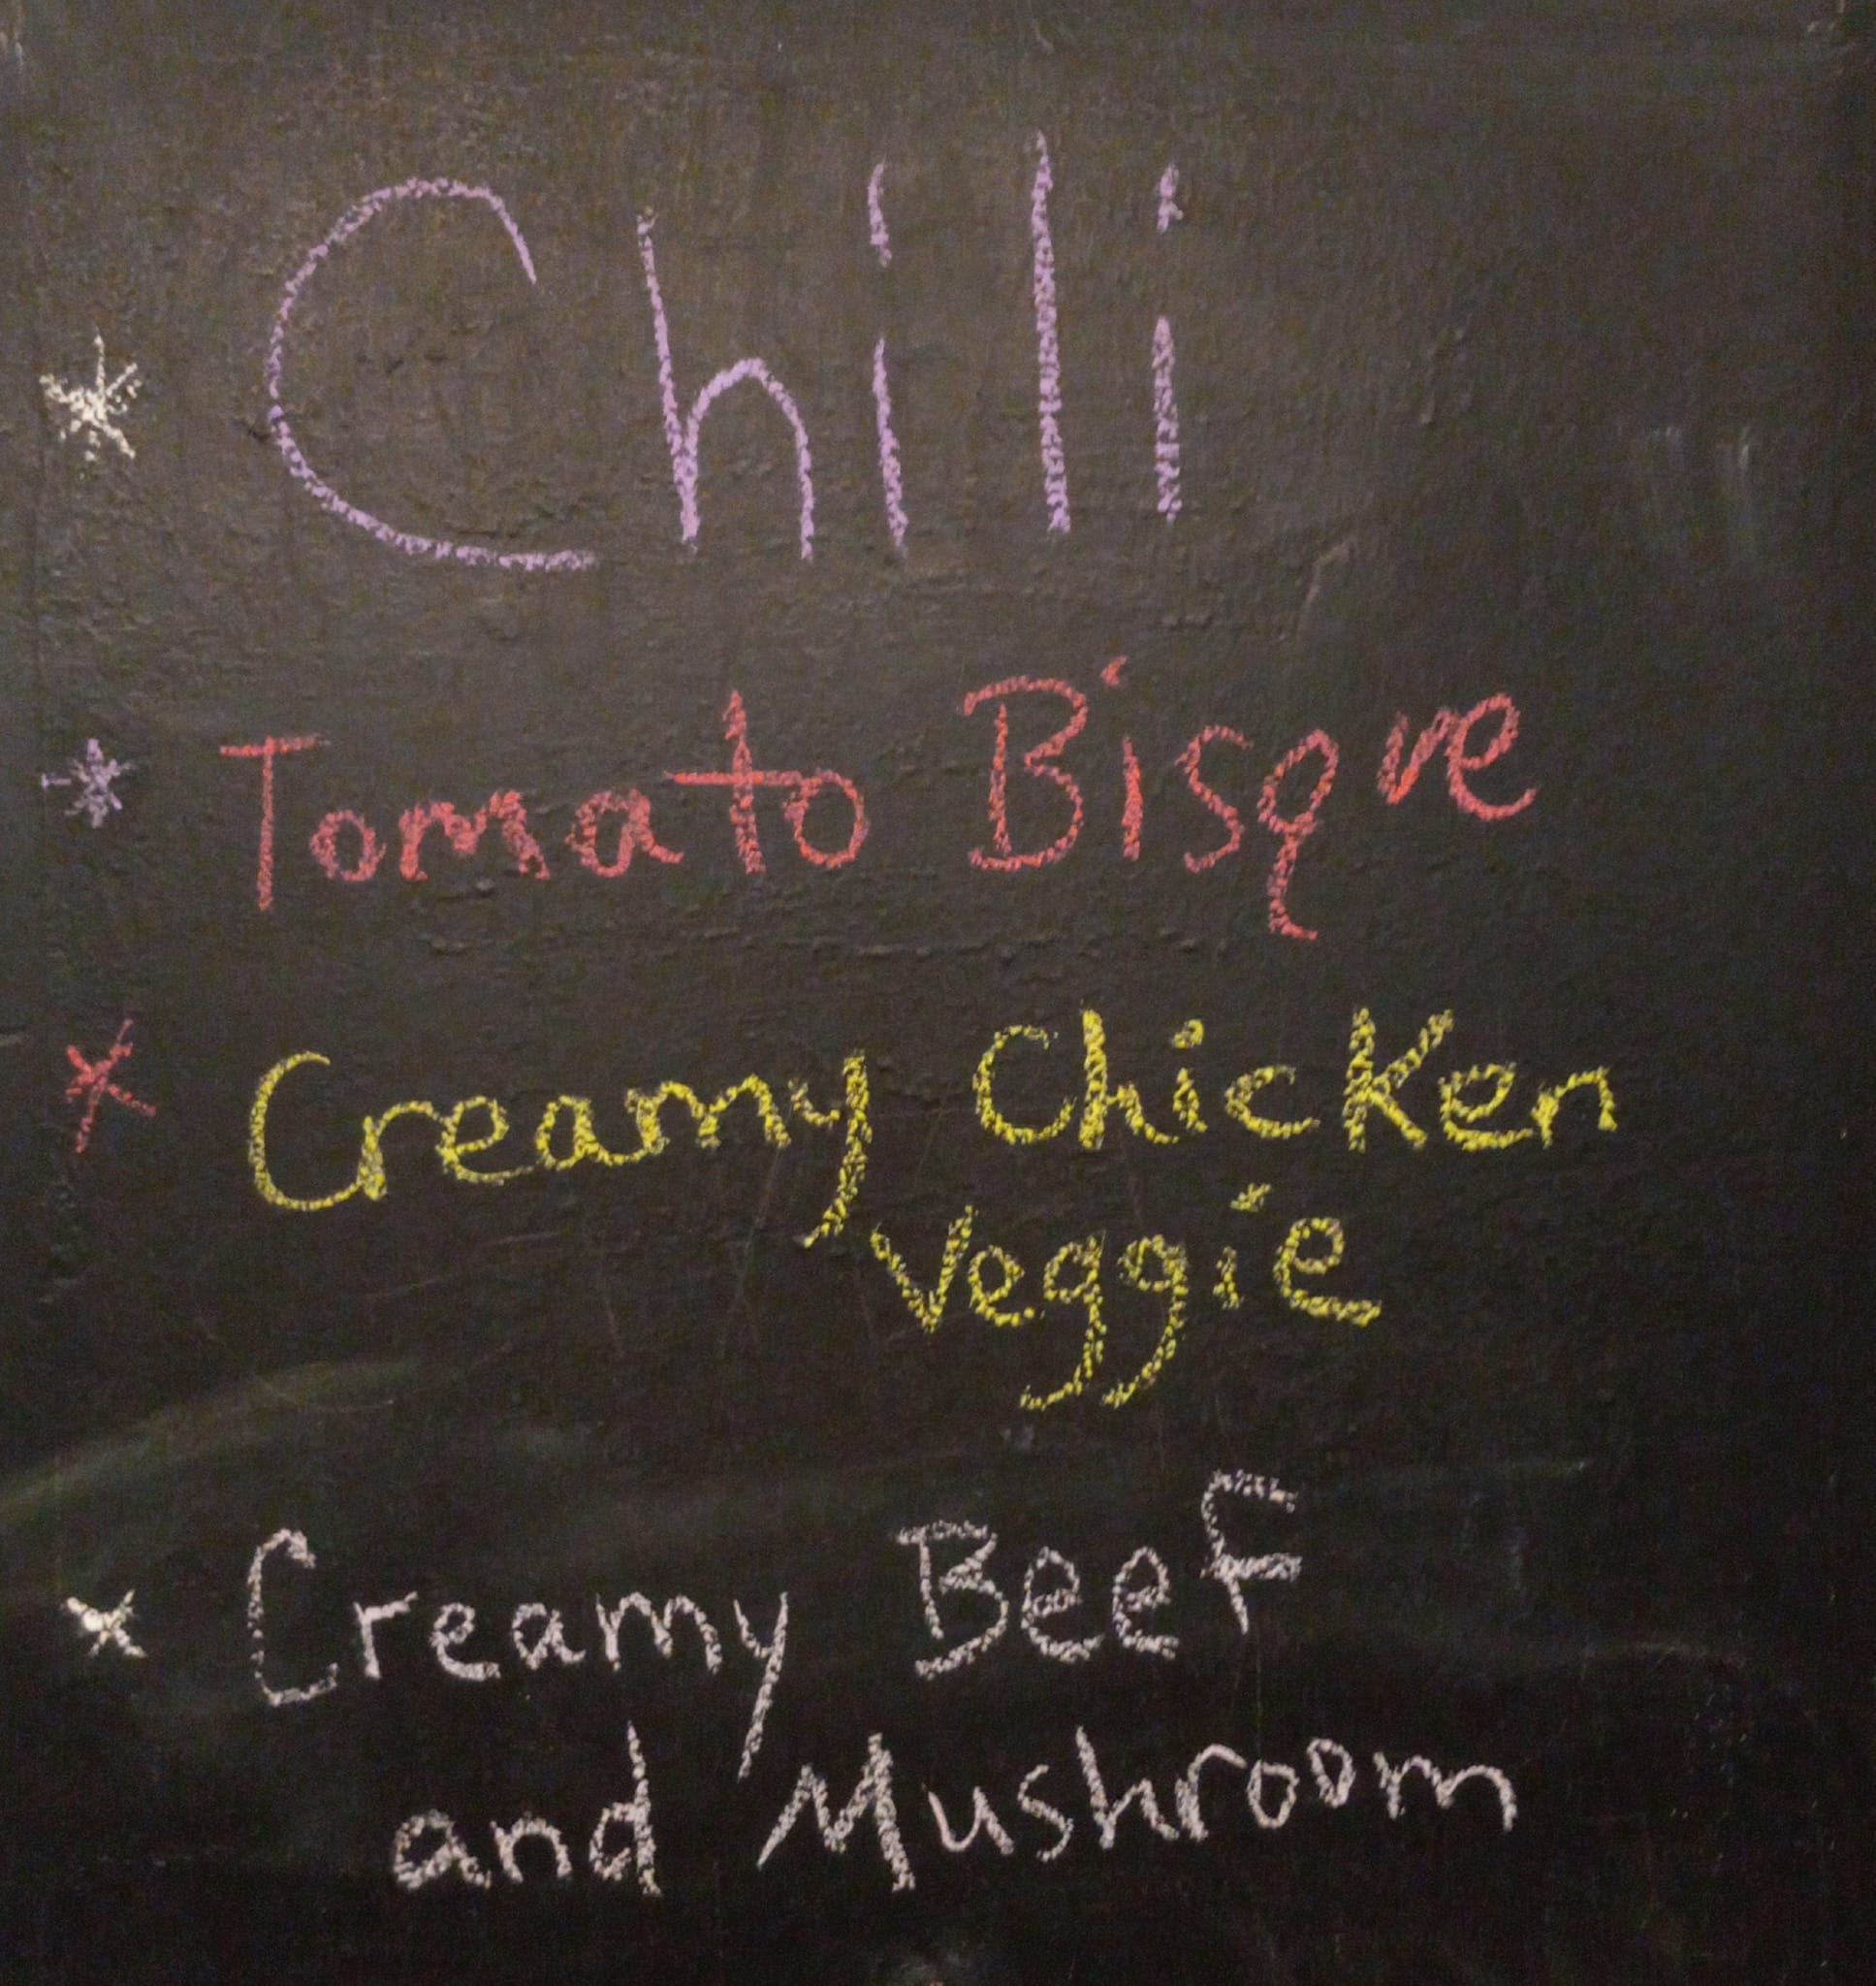 * Chili
* Tomato Bisque
* Creamy Chicken
Veggie
* Creamy Beef
and Mushroom